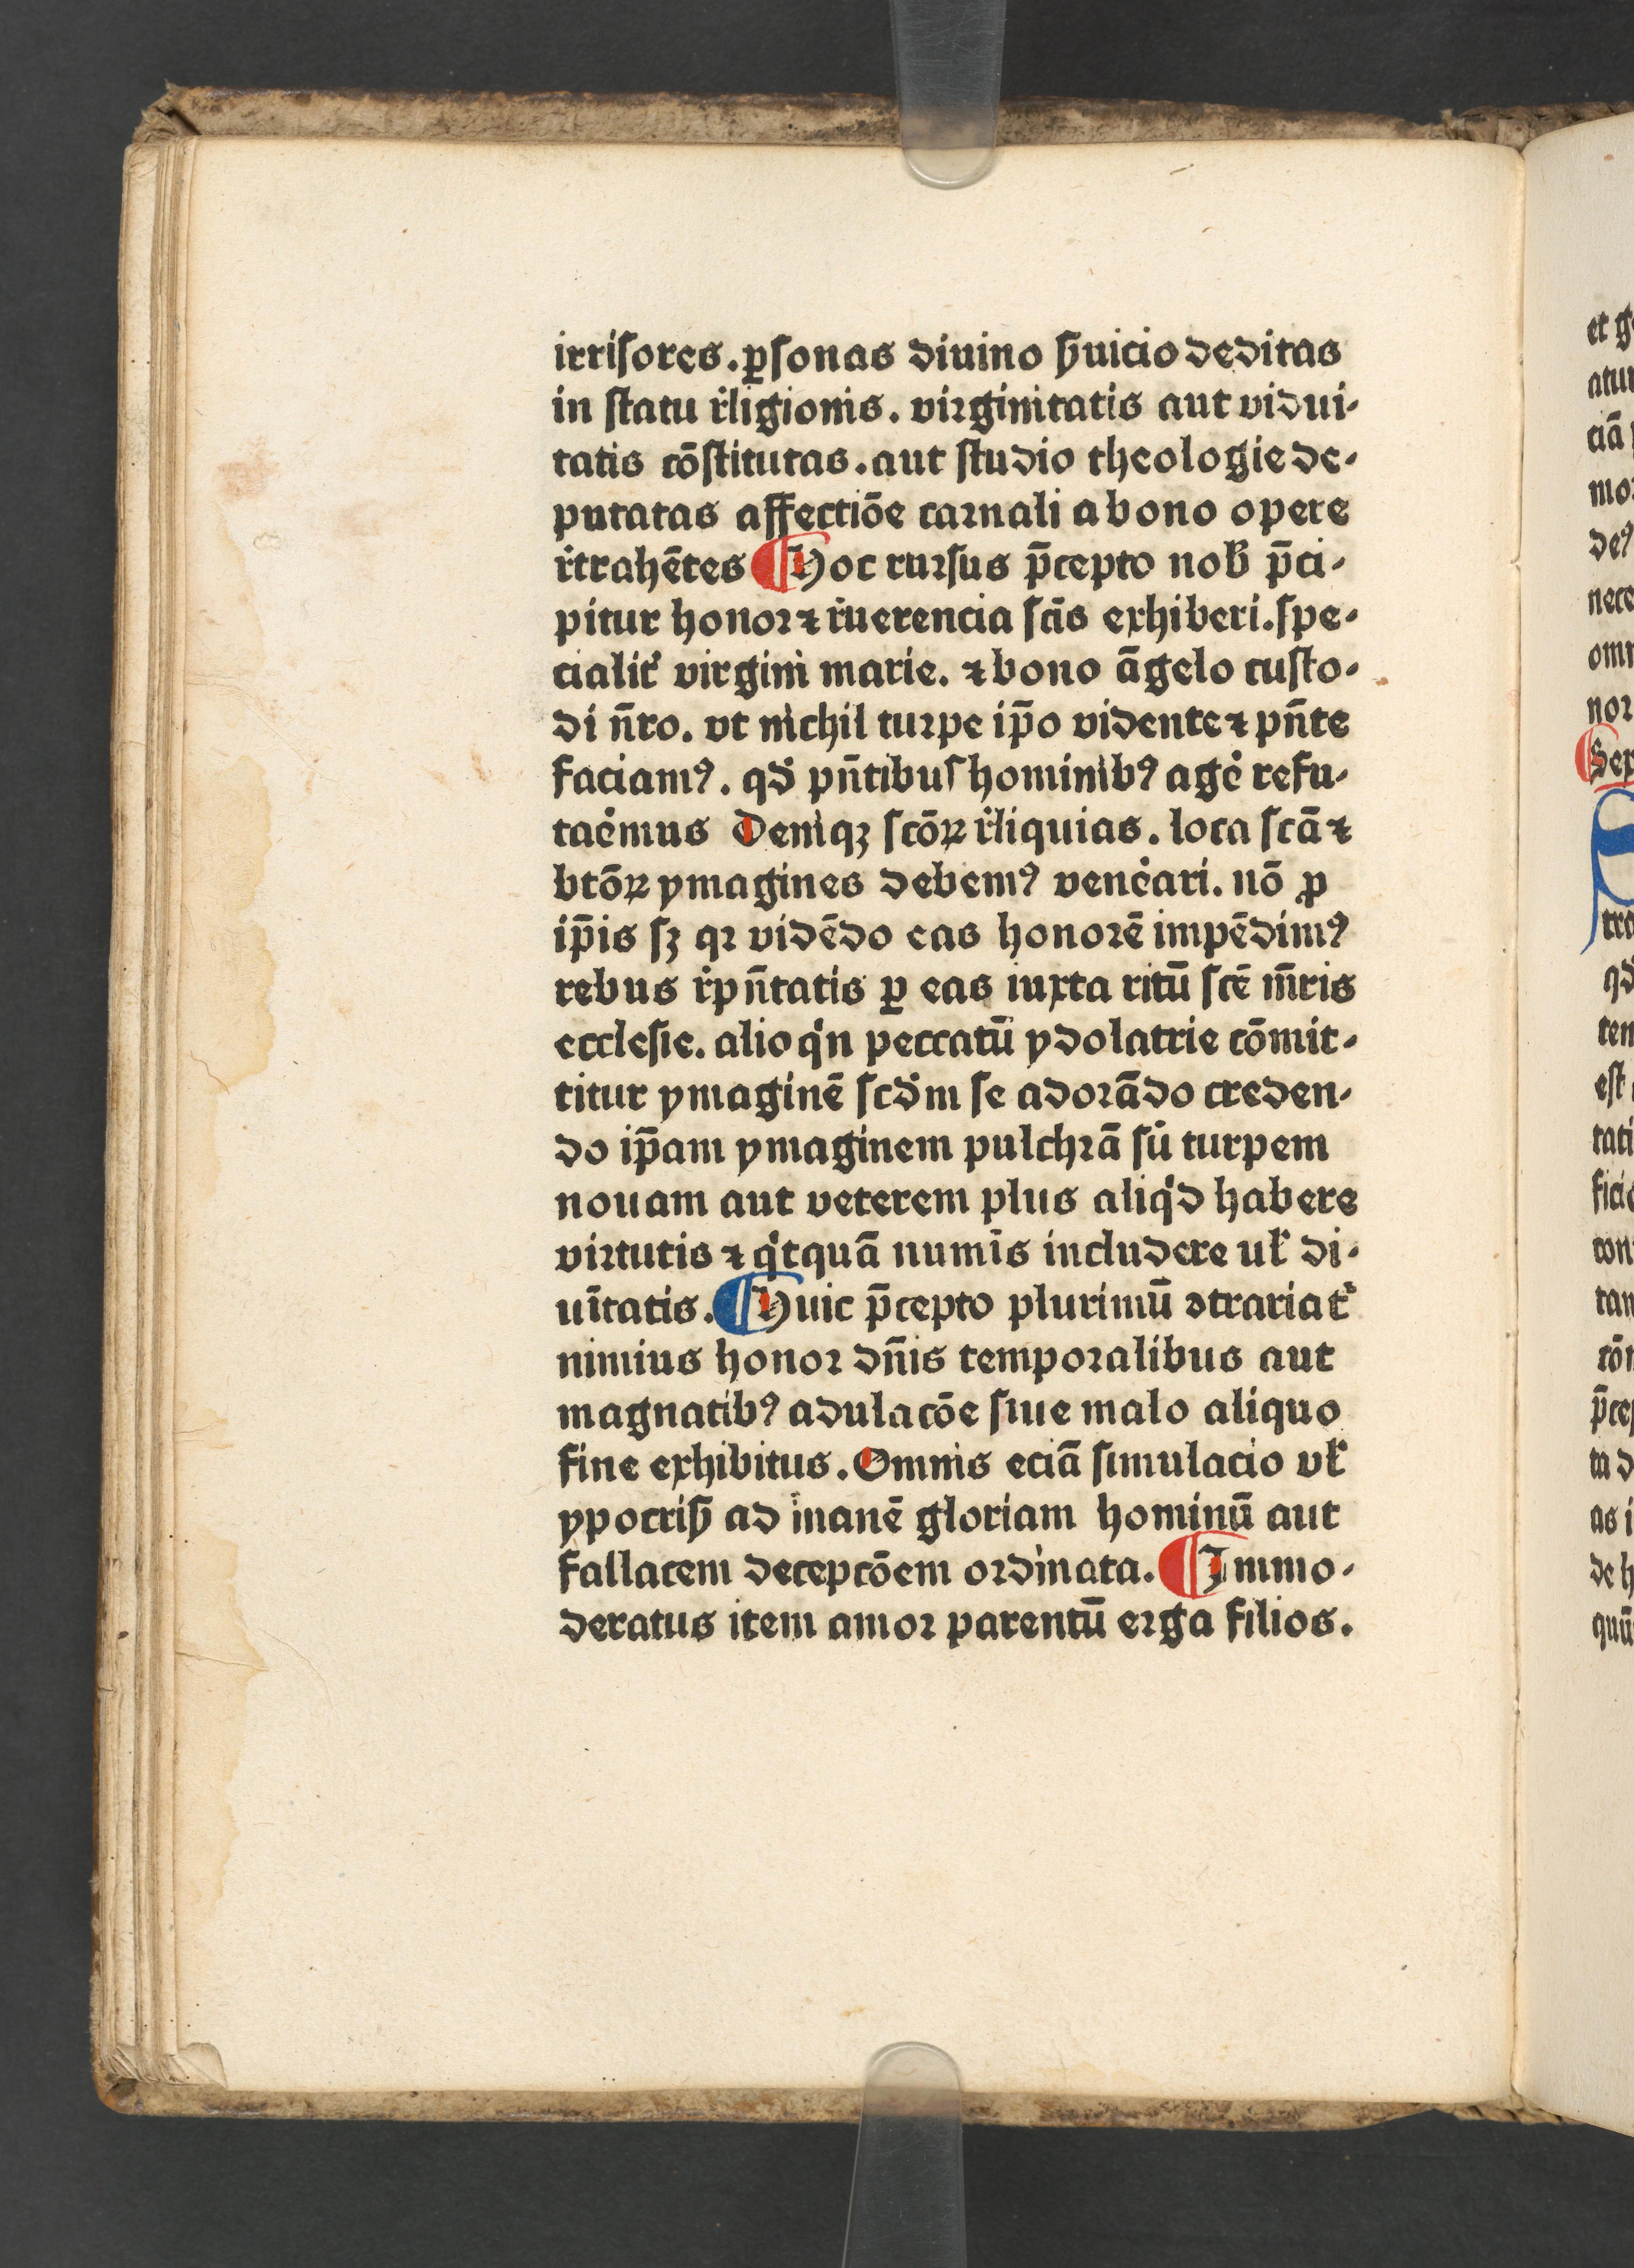 irriſores. ꝑſonas diuino ẜuicio deditas
in ſtatu r̃ligionis. virginitatis aut vidui⸗
tatis cōſtitutas. aut ſtudio theologie de⸗
putatas affectiōe carnali a bono opere
r̃trahētes ¶ Hoc rurſus p̄cepto nob̃ p̄ci⸗
pitur honor ⁊ r̃uerencia ſc̄is exhiberi. ſpe⸗
cialit̃ virgini marie. ⁊ bono āgelo cuſto⸗
di n̄ro. vt nichil turpe ip̄o vidente ⁊ pn̄te
faciamꝰ. qd̃ pn̄tibuſ hominibꝰ age᷑ refu⸗
tae᷑mus Deniqꝫ ſcōꝝ r̃liquias. loca ſcā ⁊
btōꝝ ymagines debemꝰ vene᷑ari. nō ꝓ
ip̄is ſꝫ qꝛ vidēdo eas honorē impēdimꝰ
rebus r̃pn̄tatis ꝑ eas iuxta ritū ſcē m̄ris
eccleſie. alioqͥn peccatū ydolatrie cōmit⸗
titur ymaginē ſcd̃m ſe adorādo creden⸗
do ip̄am ymaginem pulchrā ſiͧ turpem
nouam aut veterem plus aliqͥd habere
virtutis ⁊ qͥcquā numīs includere ul̃ di⸗
uītatis. ¶ Huic p̄cepto plurimū ↄtrariat᷑
nimius honor dn̄is temporalibus aut
magnatibꝰ adulacōe ſiue malo aliquo
fine exhibitus. Omnis eciā ſimulacio vl̃
ypocriẜ ad inanē gloriam hominū aut
fallacem decepcōem ordinata. ¶ Immo⸗
deratus item amor parentū erga filios.
et g
atu
ciā
mo
deꝰ
nece
omn
nor
Sep
S
tre
qd̃
ten
eſt
tati
ficio
con
tan
cōn
p̄cep
ta d
as i
de h
quū